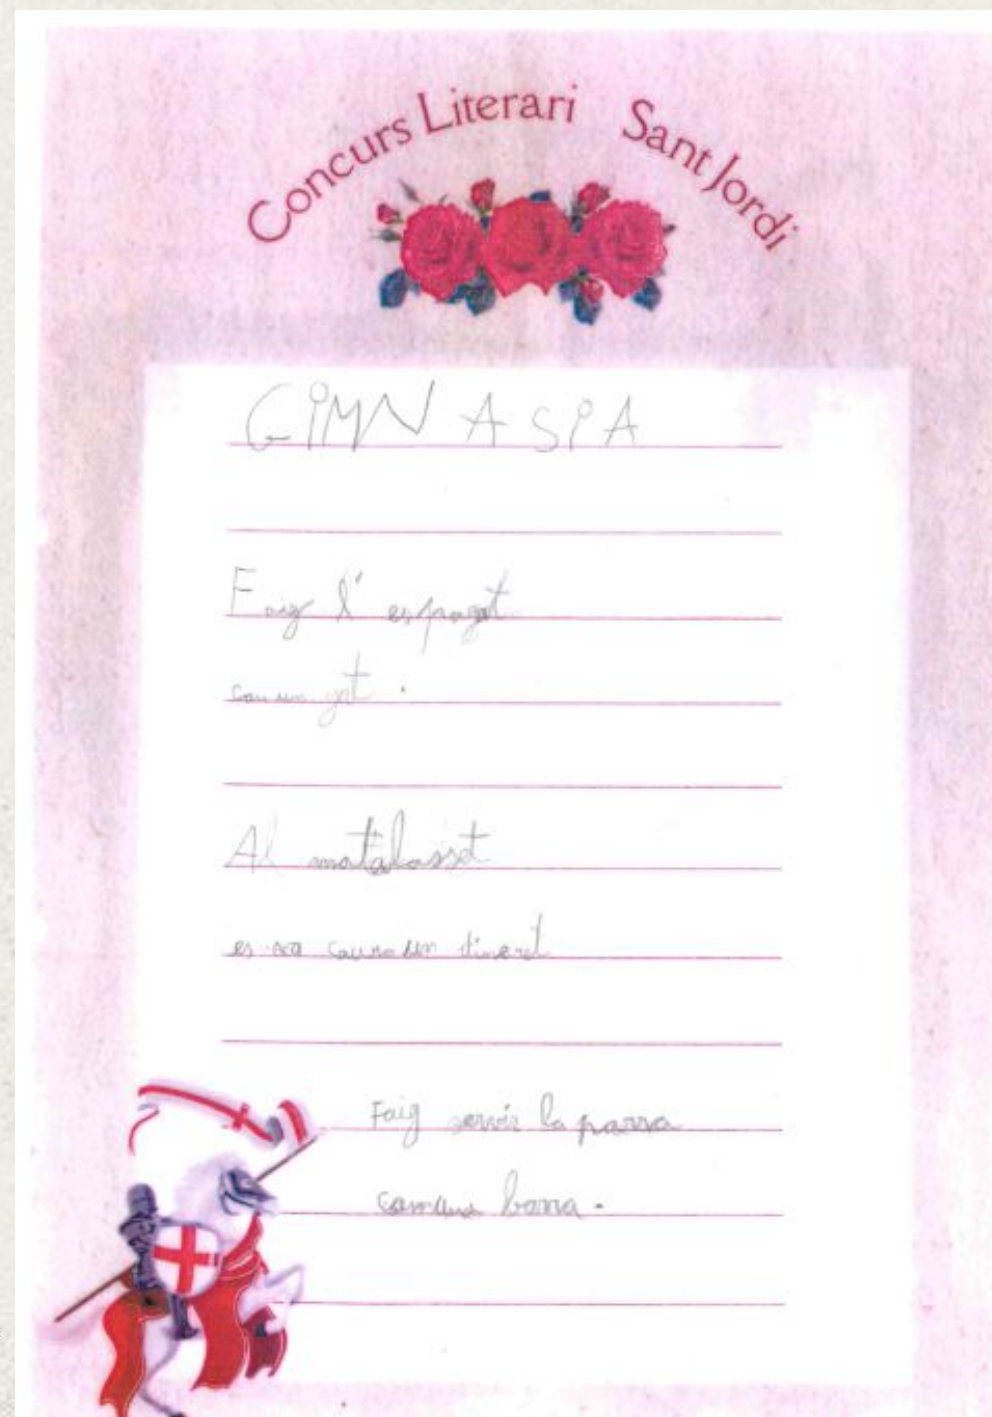 Concurs Literari Sant Jordi
GIMNASIA
Faig l'espagat
com un gat.
Al matalasset
es va caure un dineret
Faig servir la parra
com una barra.